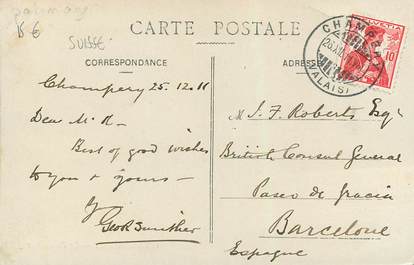 8 €
SUISSE
CARTE POSTALE
CORRESPONDANCE
ADRESSE
CHAMPÉRY
(VALAIS)
HELVETIA
10
Champery 25.12.11
Dear Mr R—
Best of good wishes
to you & yours —
J. F. Roberts Esqr
British Consul General
Paseo de Gracia
Barcelone
Espagne